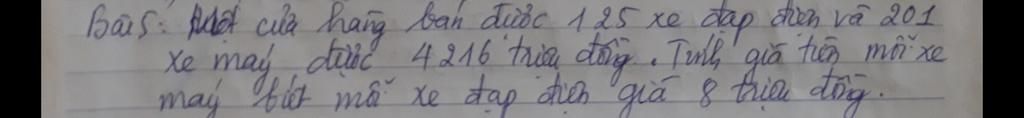 Bài 5: Một cửa hàng bán được 125 xe đạp điện và 201
xe máy được 4216 triệu đồng. Tính giá tiền mỗi xe
máy biết mỗi xe đạp điện giá 8 triệu đồng.